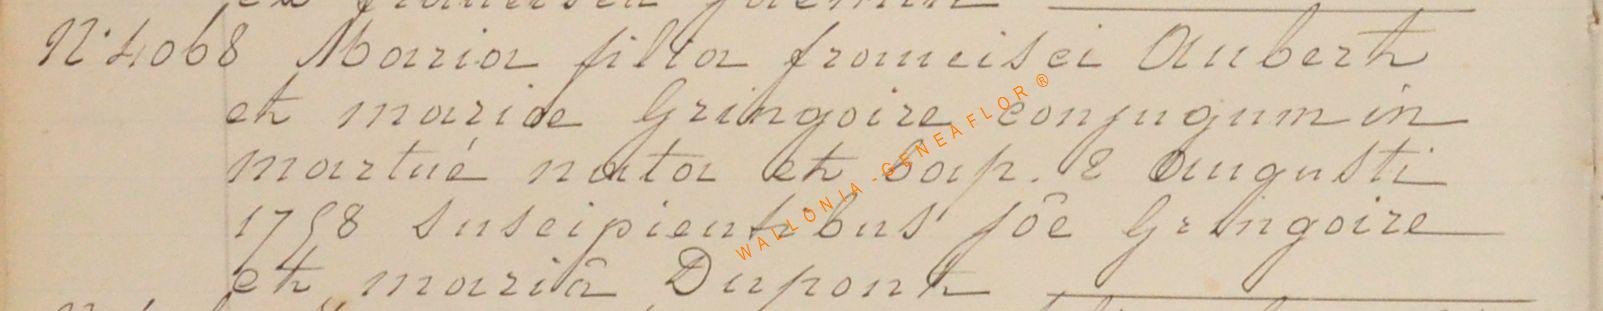 ex francisca jacmin
N° 4068 Maria filia francisci Aubert
et mariae Gringoire conjugum in
martué nata et bap. 2 Augusti
1758 suscipientibus jôe Gringoire
et mariâ Dupont
WALLONIA - GENEAFLOR ®